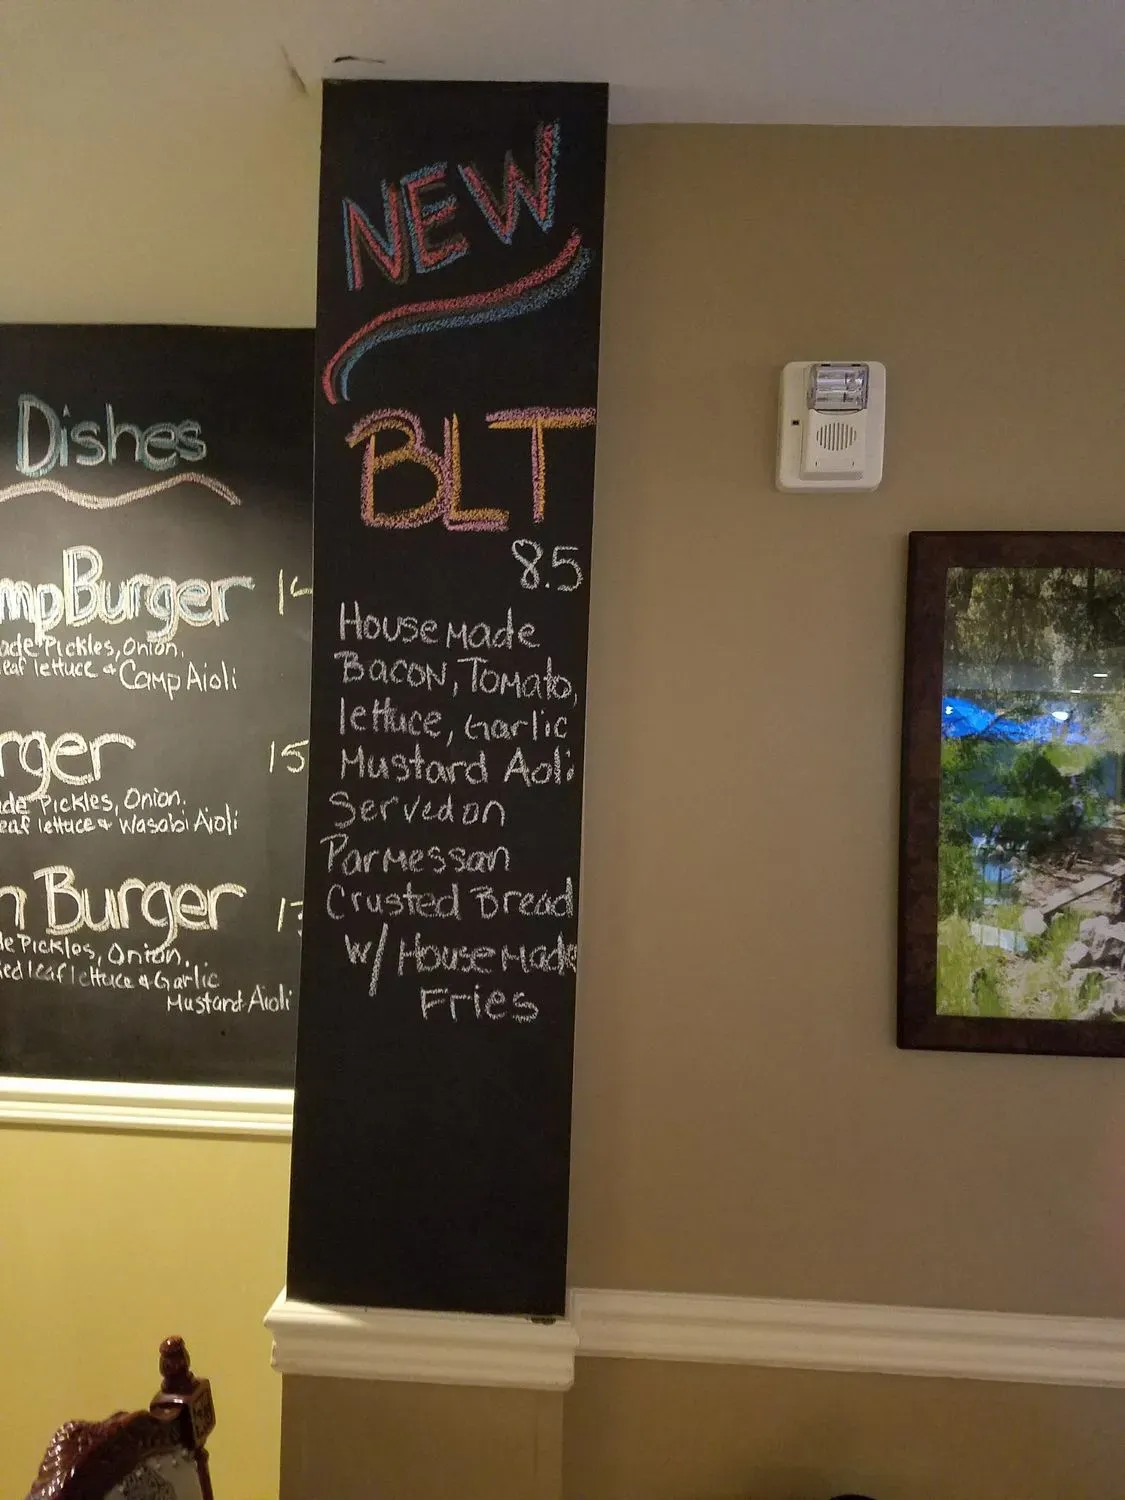 Dishes
Burger
ade Pickles, Onion.
eaf lettuce & Camp Aioli
15
de Pickles, Onion.
eaf lettuce & Wasabi Aioli
Burger
de Pickles, Onion.
ied leaf lettuce & Garlic
Mustard Aioli
NEW
BLT
8.5
House Made
Bacon, Tomato,
lettuce, Garlic
Mustard Aoli
Served on
Parmessan
Crusted Bread
w/ House Made
Fries